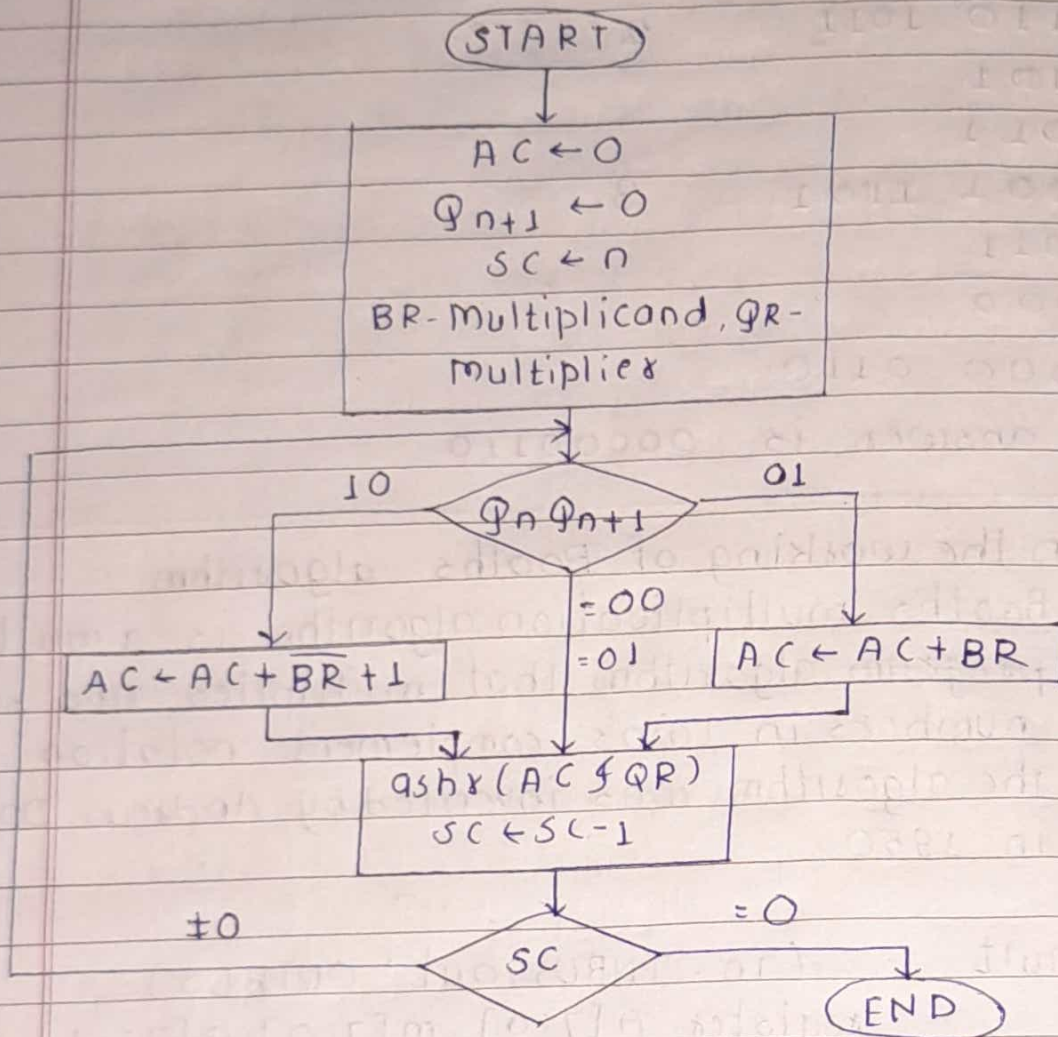 START
AC ← 0
Qn+1 ← 0
SC ← n
BR - Multiplicand, QR -
multiplier
10
01
QnQn+1
= 00
= 01
AC ← AC + B̅R̅ + 1
AC ← AC + BR
ashr (AC & QR)
SC ← SC - 1
≠0
= 0
SC
END